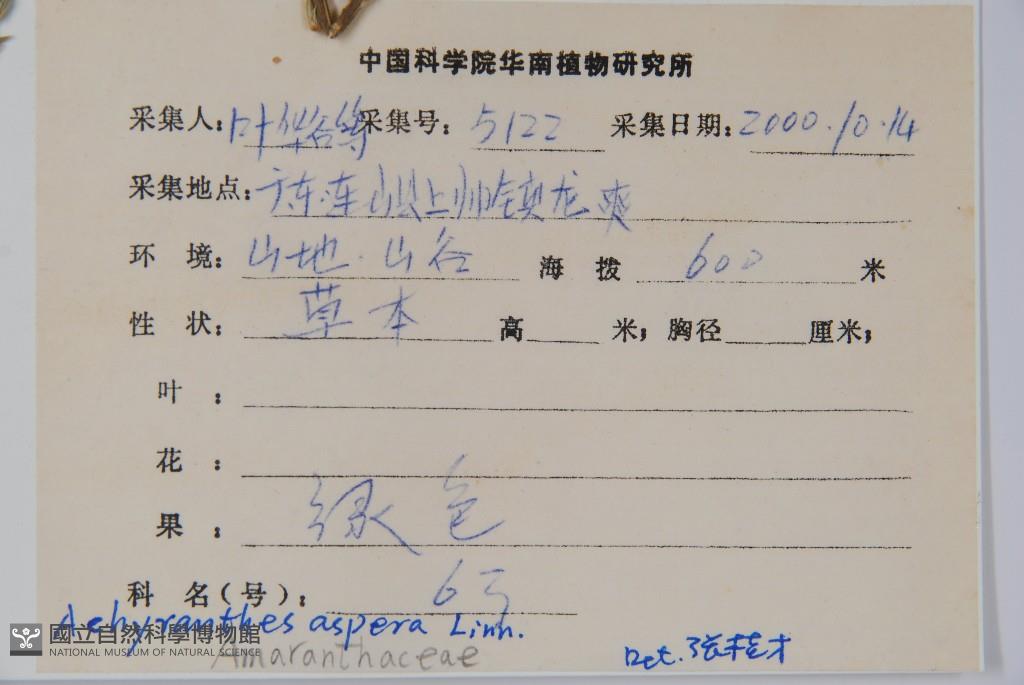 中国科学院华南植物研究所
采集人: 叶华谷等 采集号: 5122 采集日期: 2000.10.14
采集地点: 广东.连山县上帅镇龙爽
环 境: 山地.山谷 海 拨 600 米
性 状: 草本 高 米; 胸径 厘米;
叶 :
花 :
果 : 绿色
科 名(号): 63
Achyranthes aspera Linn.
國立自然科學博物館
NATIONAL MUSEUM OF NATURAL SCIENCE
Amaranthaceae
Det. 张桂才